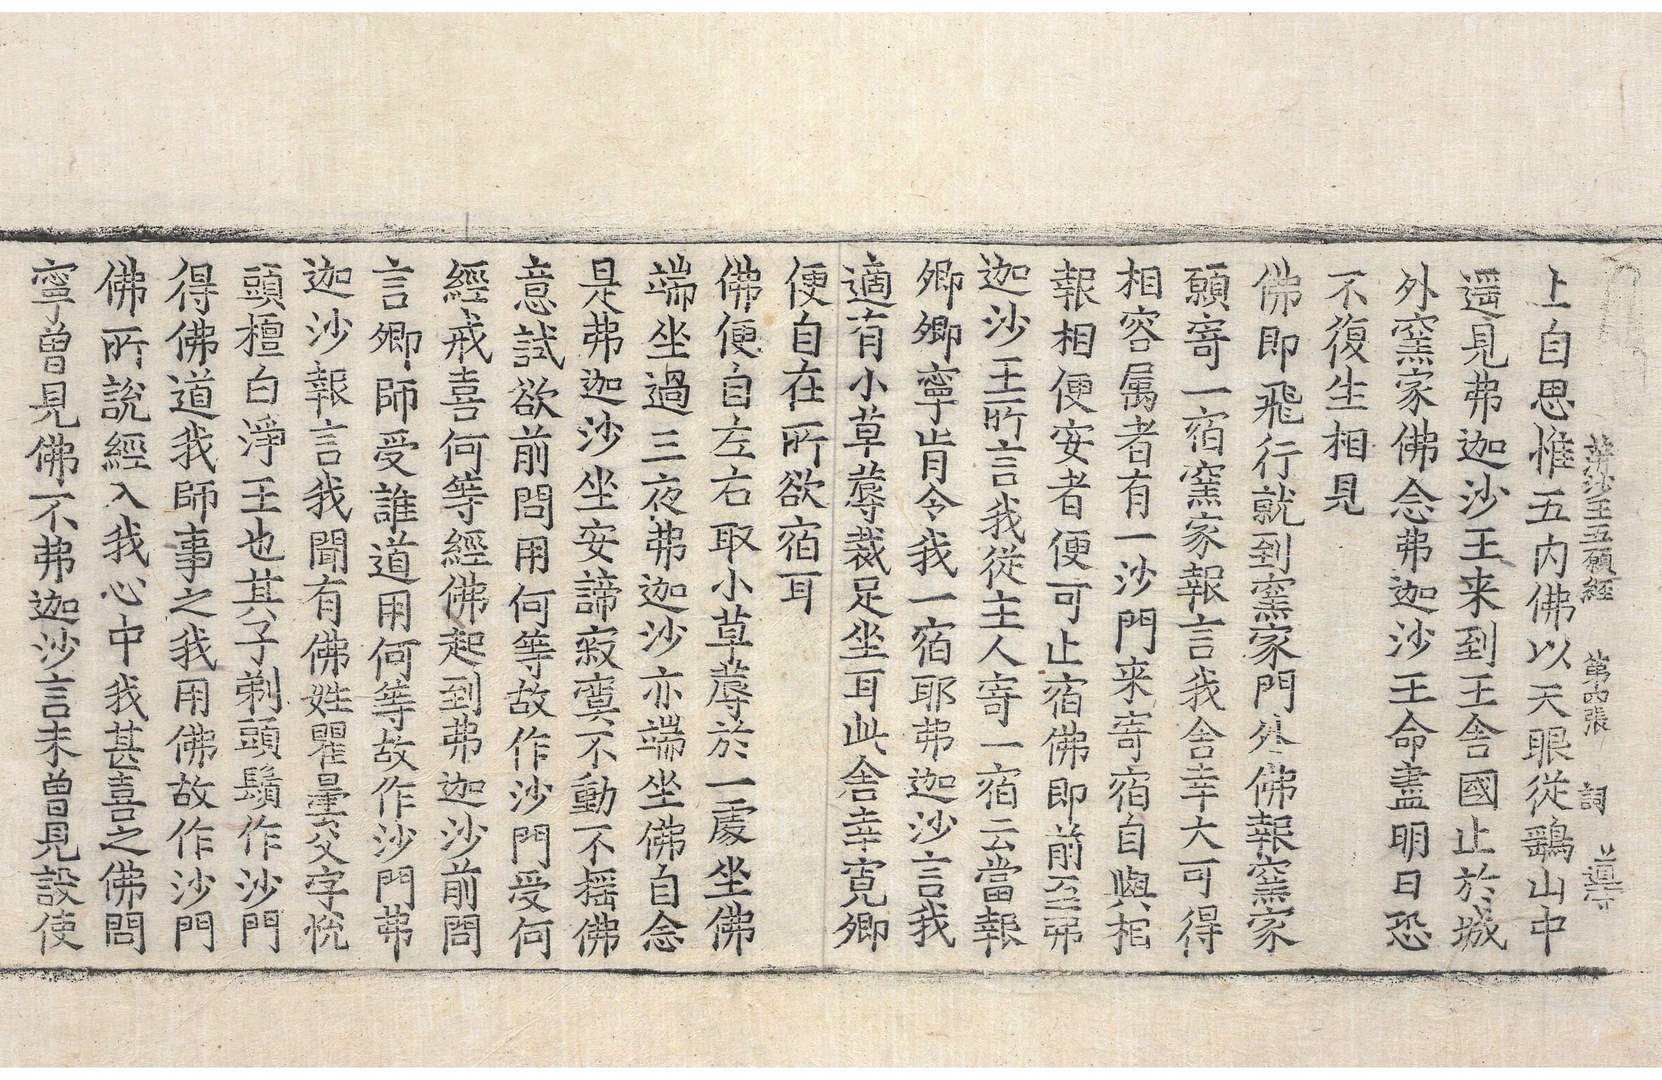 蓱沙王五願經 第四張 詞
上自思惟五內佛以天眼從鷂山中
遥見弗迦沙王来到王舍國止於城
外窯家佛念弗迦沙王命盡明日恐
不復生相見
佛即飛行就到窯家門外佛報窯家
願寄一宿窯家報言我舍幸大可得
相容属者有一沙門来寄宿自與相
報相便安者便可止宿佛即前至弗
迦沙王所言我從主人寄一宿云當報
卿卿寧肯令我一宿耶弗迦沙言我
適有小草蓐裁足坐耳此舍幸寛卿
便自在所欲宿耳
佛便自左右取小草蓐於一處坐佛
端坐過三夜弗迦沙亦端坐佛自念
是弗迦沙坐安諦寂寞不動不摇佛
意試欲前問用何等故作沙門受何
經戒喜何等經佛起到弗迦沙前問
言卿師受誰道用何等故作沙門弗
迦沙報言我聞有佛姓瞿曇父字恱
頭檀白淨王也其子剃頭鬚作沙門
得佛道我師事之我用佛故作沙門
佛所說經入我心中我甚喜之佛問
寧曾見佛不弗迦沙言未曾見設使